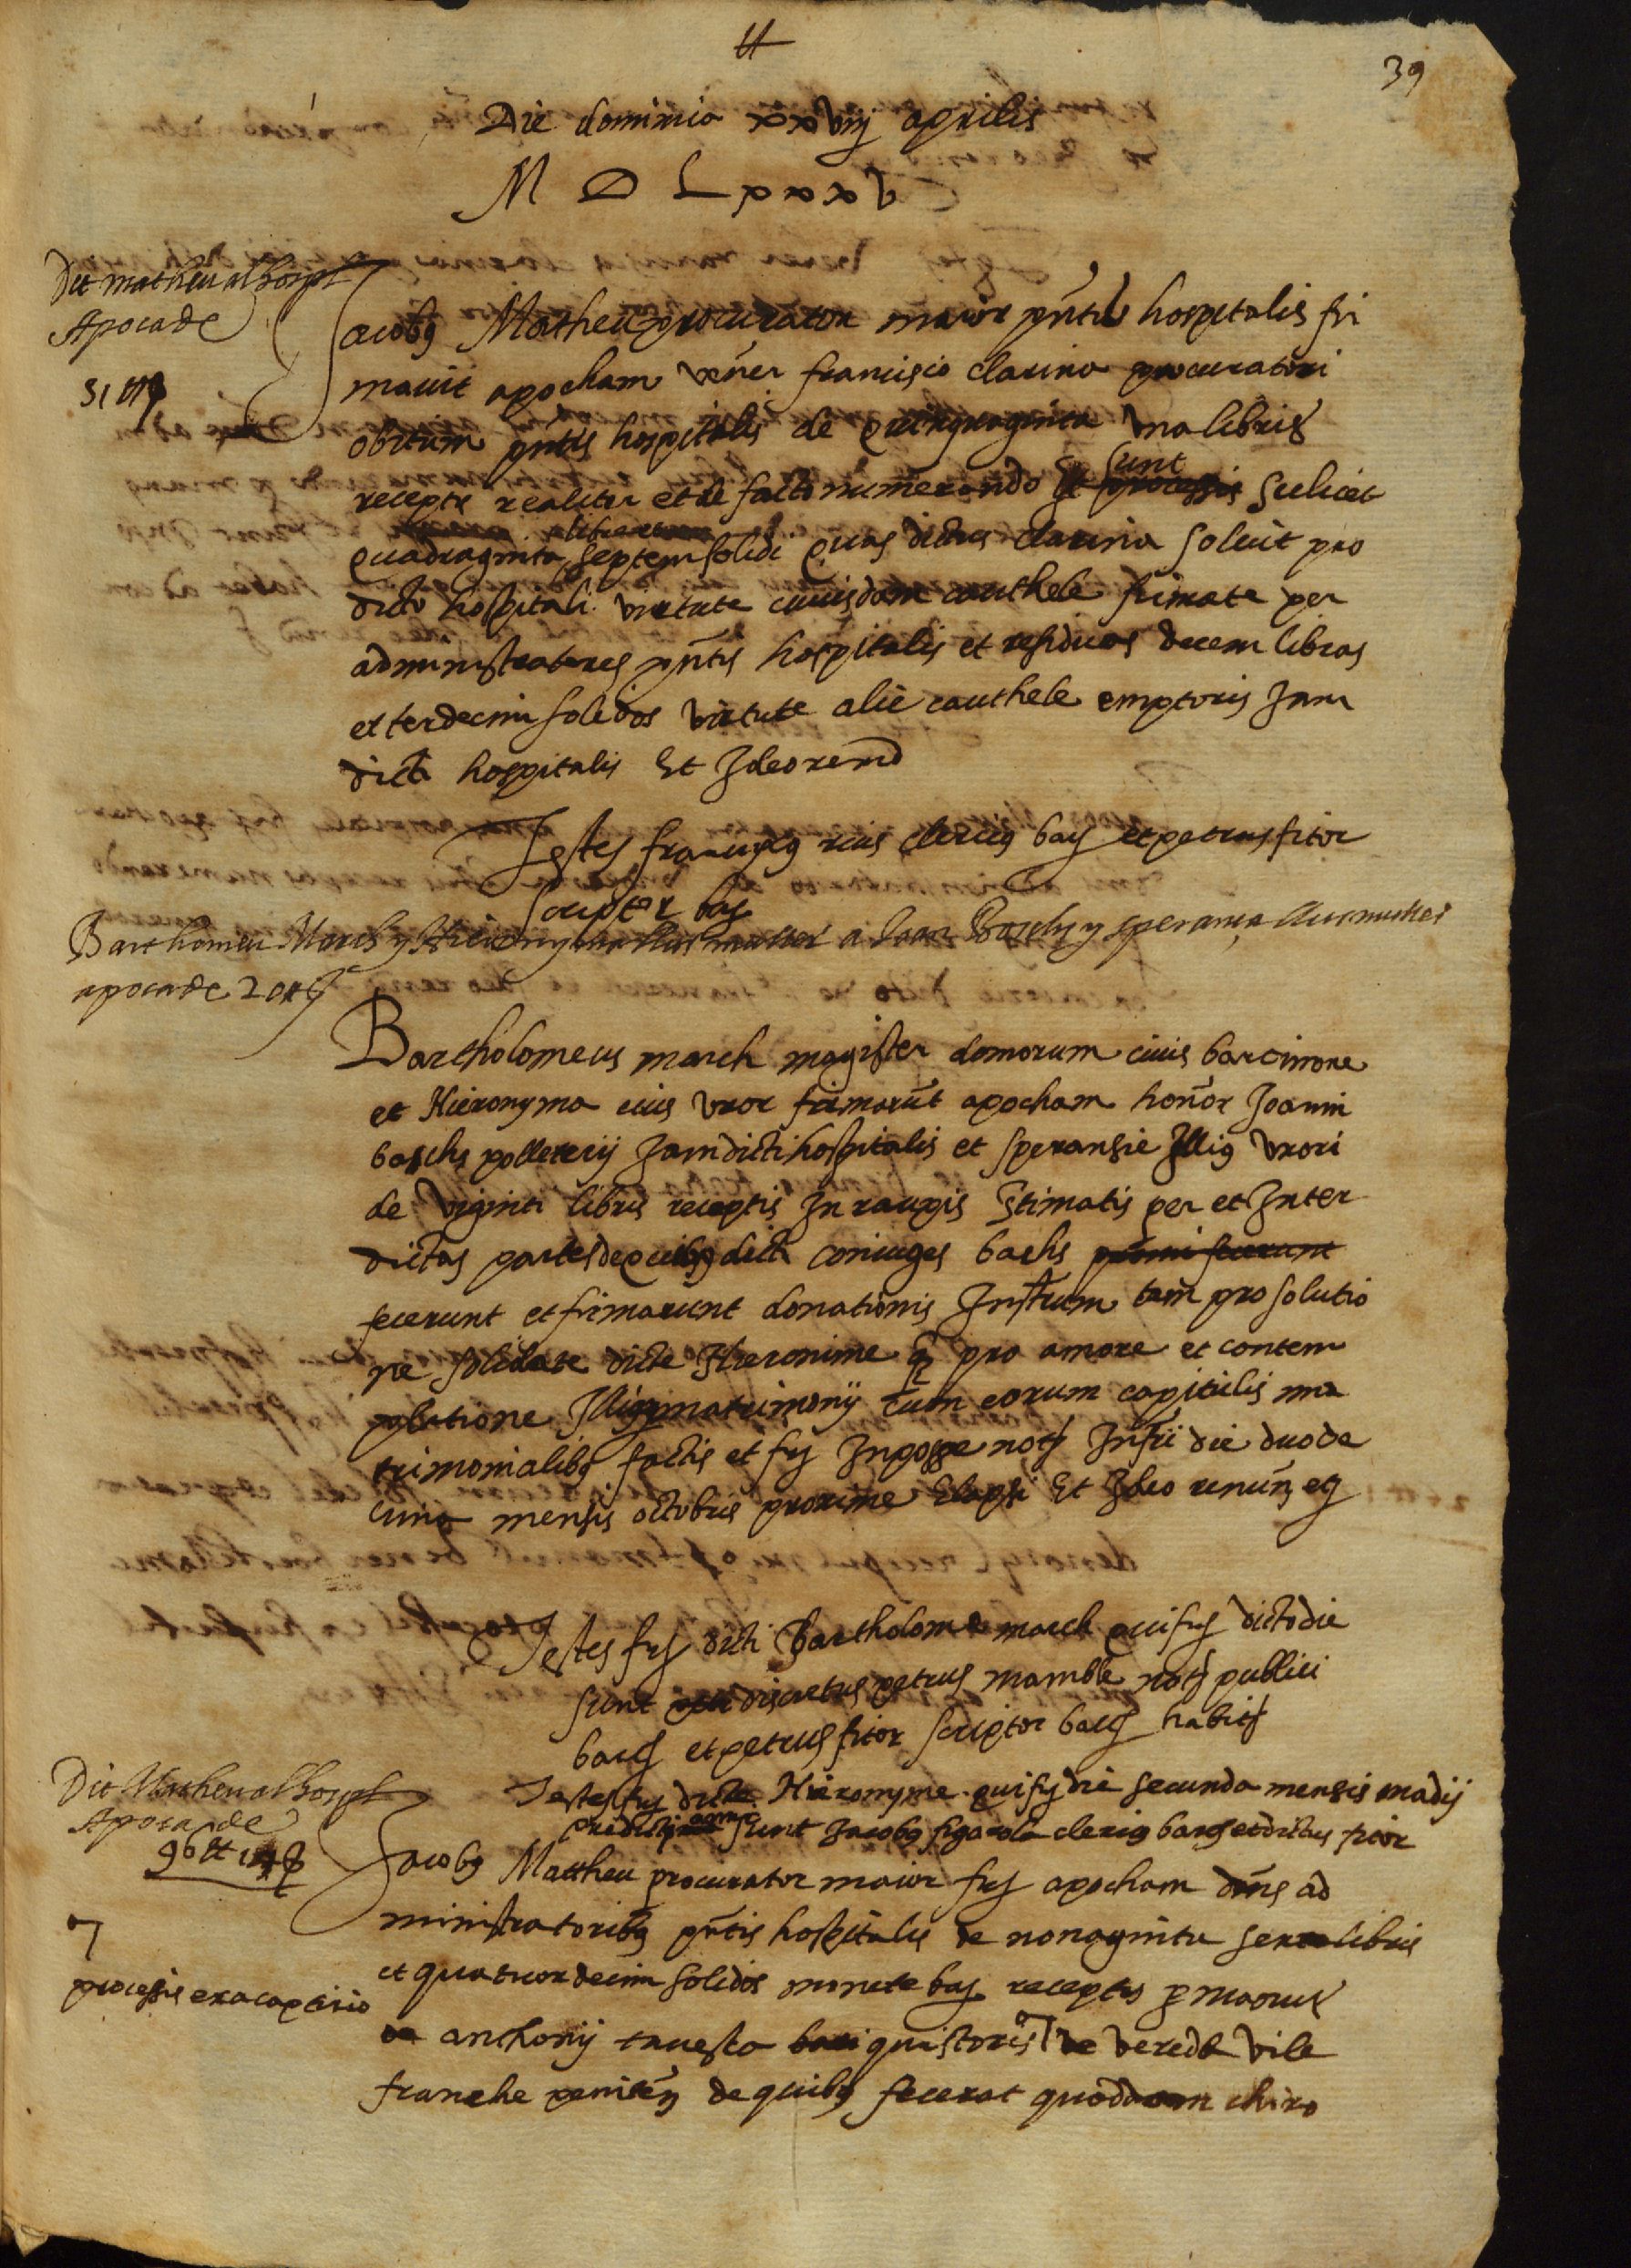 39
Die dominica xxviij aprilis
M D L xxxv
Dit matheu al hospl
Apoca de
51 ll
Jacobus Matheu procurator maior pntis hospitalis fir
mavit apocham vener francisco clarina procuratori
obituum pntis hospitalis de quinquaginta una libris
receptis realiter et de facto numerando Et processis sunt scilicet
quadraginta libre septem solidi quas dictus clarina solvit pro
dicto hospitali virtute cuiusdam cauthele firmate per
administratores pntis hospitalis et residuas decem libras
et terdecim solidos virtute alie cauthele emptoris Jam
dicti hospitalis Et Ideo renun
Testes franciscus rius clericus bar et petrus fitor
scriptor bar
Barthomeu March y Hieronyma a Joan Baschs y sperança
apoca de 20 ll
Bartholomeus march magister domorum civis barcinone
et Hieronyma eius uxor firmarunt apocham honor Joanni
baschs polleterij Jamdicti hospitalis et speransie Illius uxori
de viginti libris receptis In raupis Estimatis per et Inter
dictas partes de quibus dicti coniuges baschs promi fecerunt
fecerunt et firmarunt donationis Instrum tam pro solutio
ne solidate dicte Hieronime q pro amore et contem
platione Illius matrimonij cum eorum capitulis ma
trimonialibus factis et fr In posse not Infri die duode
cimo mensis octobris proxime Elapsi Et Ideo renun ec
Testes fr dicti Bartholome march qui fr dicto die
sunt discretus petrus mambla not publici
bar et petrus fitor scriptor bar habit
Testes fr dicte Hieronyme qui fr die secunda mensis madij
predicti anni sunt Jacobus figarola clericus bar et dictus fitor
Dit Matheu al hospl
Apoca de
96 ll 14 s
Jacobus Mattheu procurator maior fr apocham dnis ad
ministratoribus pntis hospitalis de nonaginta sex libris
et quatuordecim solidos monete bar receptis p manus
de anthonij travesa baciquistoris de verede vile
franche peniten de quibus fecerat quoddam chiro
processis ex acaptirio